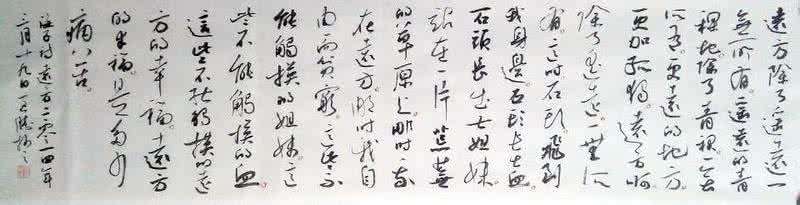 遠方除了遥遠一
無所有。遥遠的青
稞地。除了青稞一無
所有。更遠的地方。
更加孤獨。遠方啊
除了遥遠一無所
有。這时石头飛到
我身邊。石头长出血。
石頭長出七姐妹。
站在一片荒蕪
的草原上。那时我
在遠方。那时我自
由而贫窮。這些不
能觸摸的姐妹。這
些不能觸摸的血。
這些不能觸摸的遠
方的幸福。遠方
的幸福。是多少
痛苦。
海子诗遠方二〇一四年
月十九日